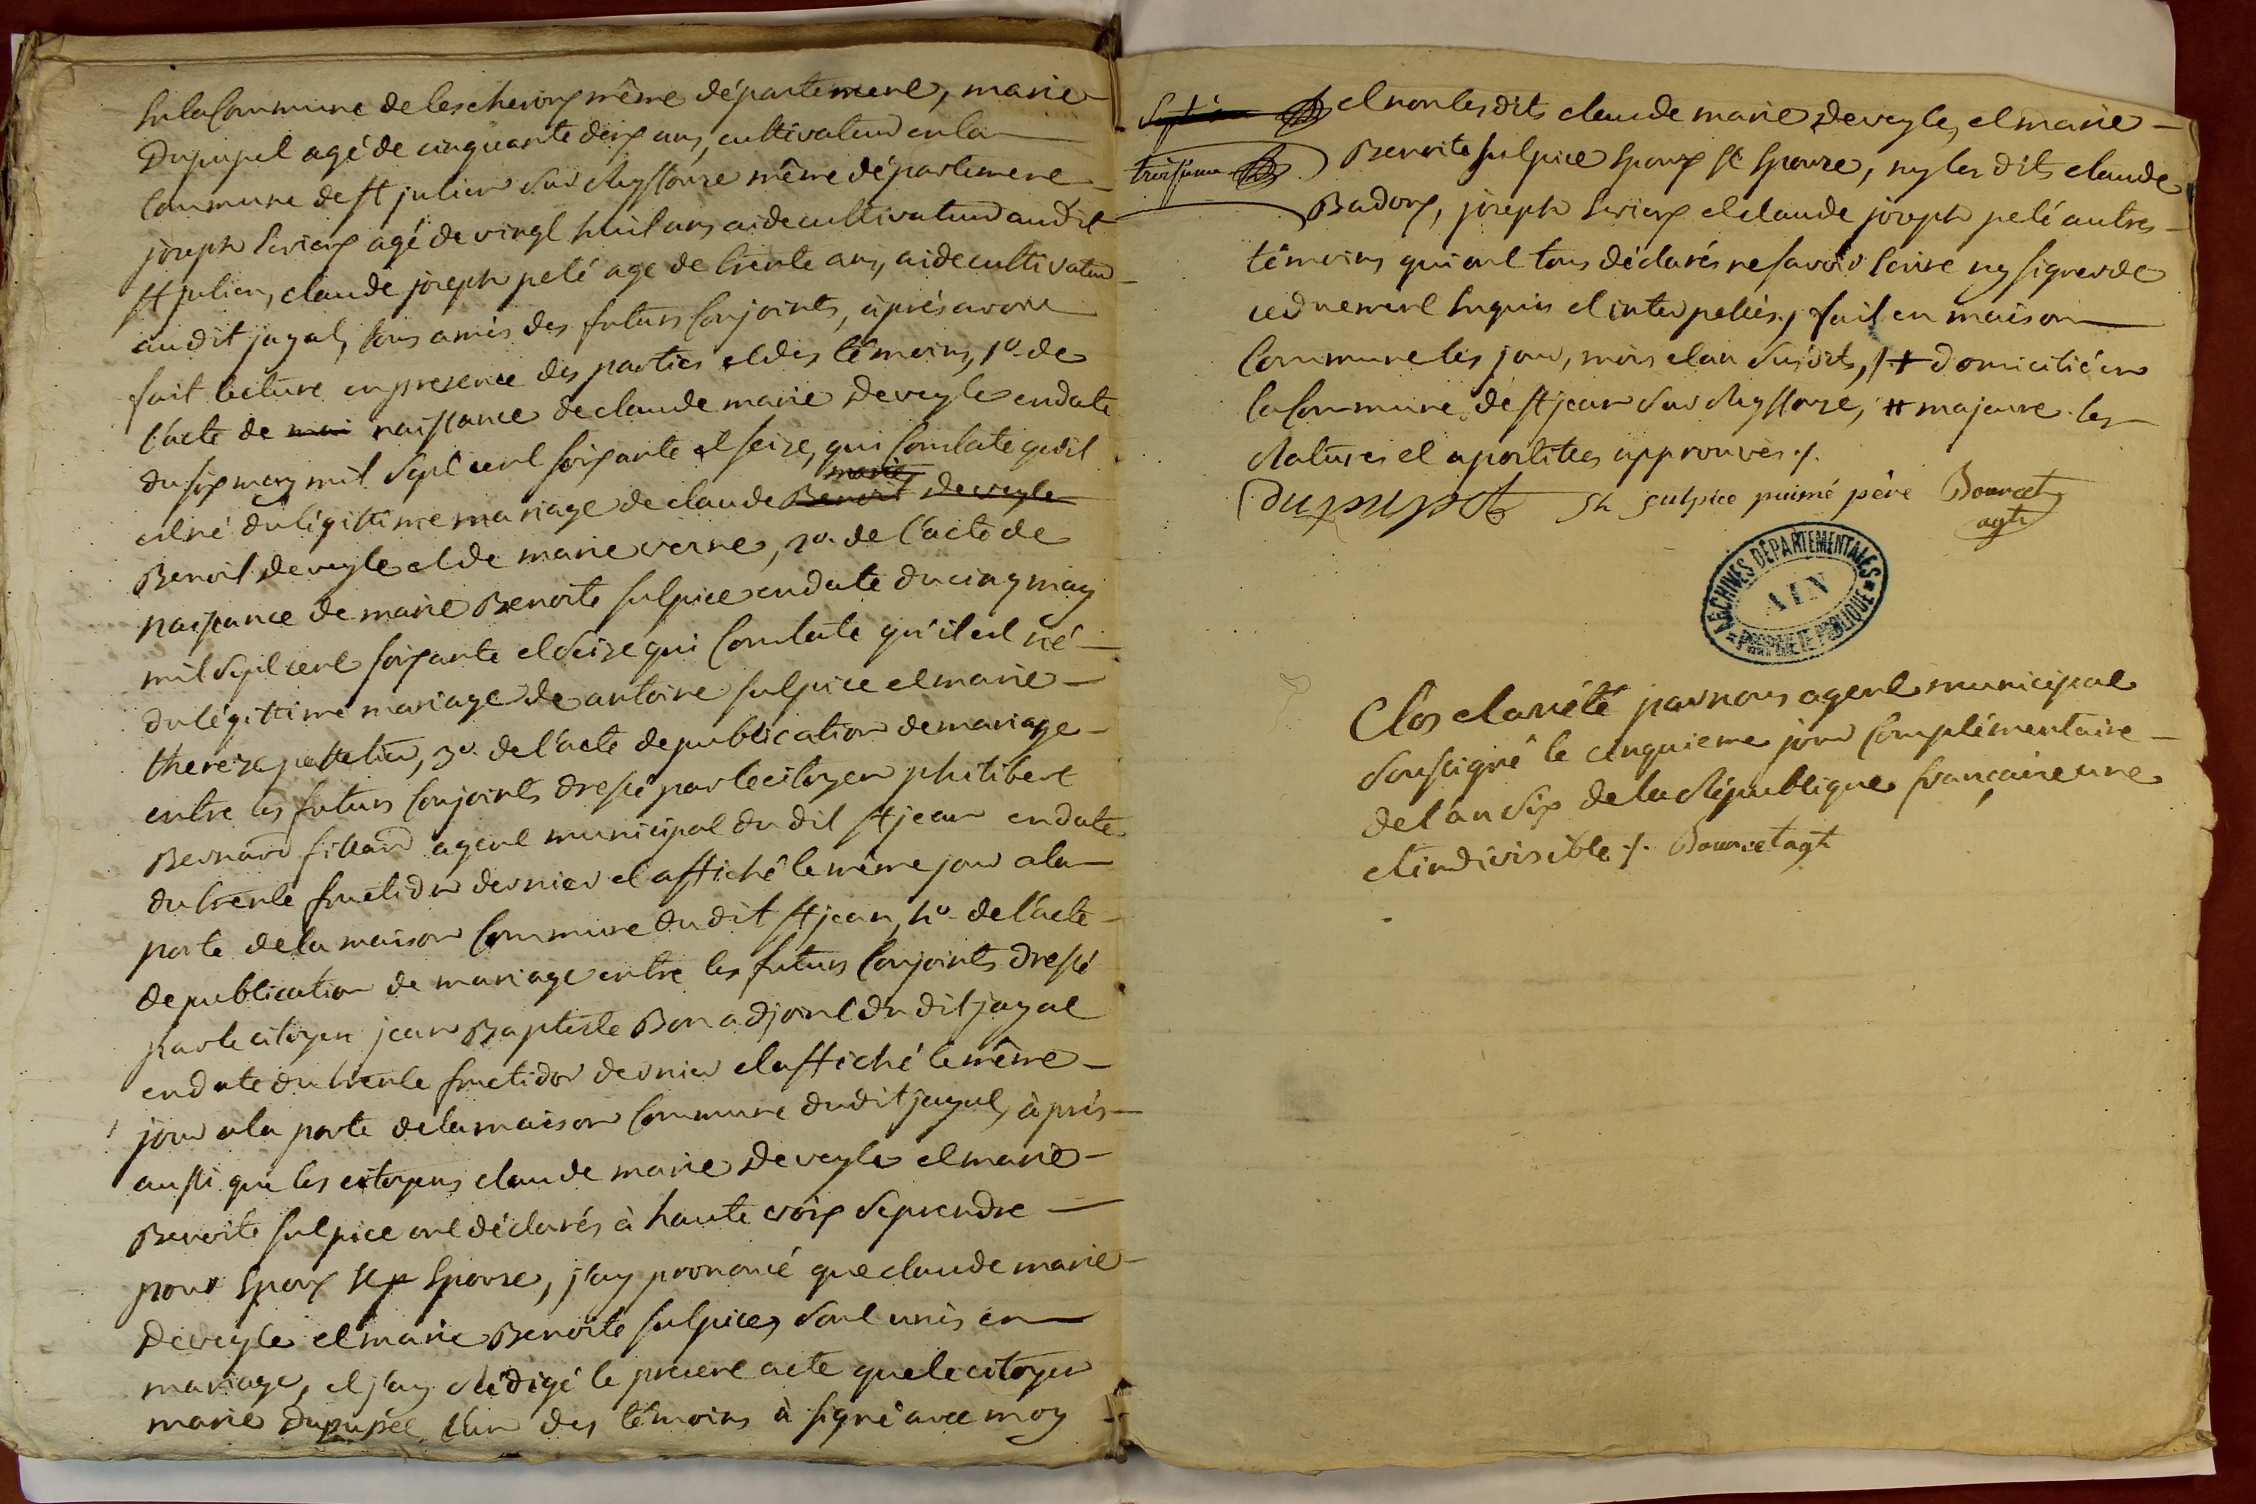 En la Commune de lescheroux même département, marie
Dupupet agé de cinquante deux ans, cultivateur en la
Commune de St julien sur Reyssouze même département
joseph Perieux agé de vingt huit ans aide cultivateur audit
St julien, claude joseph pelé age de trente ans, aide cultivateur
audit jayat, tous amis des futurs Conjoints, après avoir
fait lecture en presence des parties et des témoins, 1o. de
l'acte de mai naissance de claude marie Deveyle en date
du six mars mil sept cent soixante et seize, qui Constate qu'il
est né du légittime mariage de claude Benoit Deveyle
marie
Benoit Deveyle et de marie verne, 2o. de l'acte de
naissance de marie Benoite sulpice en date du cinq may
mil sept cent soixante et seize qui Constate qu'il est né
du légittime mariage de antoine sulpice et marie
thereze pattelier, 3o. de l'acte de publication de mariage
entre les futurs Conjoints dressé par le citoyen philibert
Bernard fillard agent municipal du dit St jean en date
du trente fructidor dernier et affiché le même jour a la
porte de la maison Commune du dit St jean, 4o. de l'acte
de publication de mariage entre les futurs Conjoints dressé
par le citoyen jean Baptiste Bon adjoint du dit jayat
en date du trente fructidor dernier et affiché le même
jour a la porte de la maison Commune dudit jayat, après
aussi que les citoyens claude marie Deveyle et marie
Benoite sulpice ont déclarés à haute voix se prendre
pour Epoux et Epouse, j'ay prononcé que claude marie
Deveyle et marie Benoite sulpice, sont unis en
mariage, et j'ay rédigé le présent acte que le citoyen
marie Dupupet l'un des témoins à signé avec moy
Septième et non les dits claude marie Deveyle, et marie
troisieme Benoite sulpice Epoux et Epouse, ny les dits claude
Badoux, joseph Perieux et claude joseph pelé autres
témoins qui ont tous déclarés ne savoir Ecrire ny signer de
ce dument Enquis et interpellés, fait en maison
Commune les jour, mois et an susdits, /+ domicilié en
la Commune de St jean sur Reyssouze, # majeure les
Ratures et apostilles approuvés ./.
Dupupet sulpice puiné père Bourcet
agt
ARCHIVES DÉPARTEMENTALES
AIN
PROPRIÉTÉ PUBLIQUE
Clos et arrété par nous agent municipal
soussigné le cinquieme jour Complémentaire
de l'an six de la République francaise une
et indivisible ./. Bourcet agt